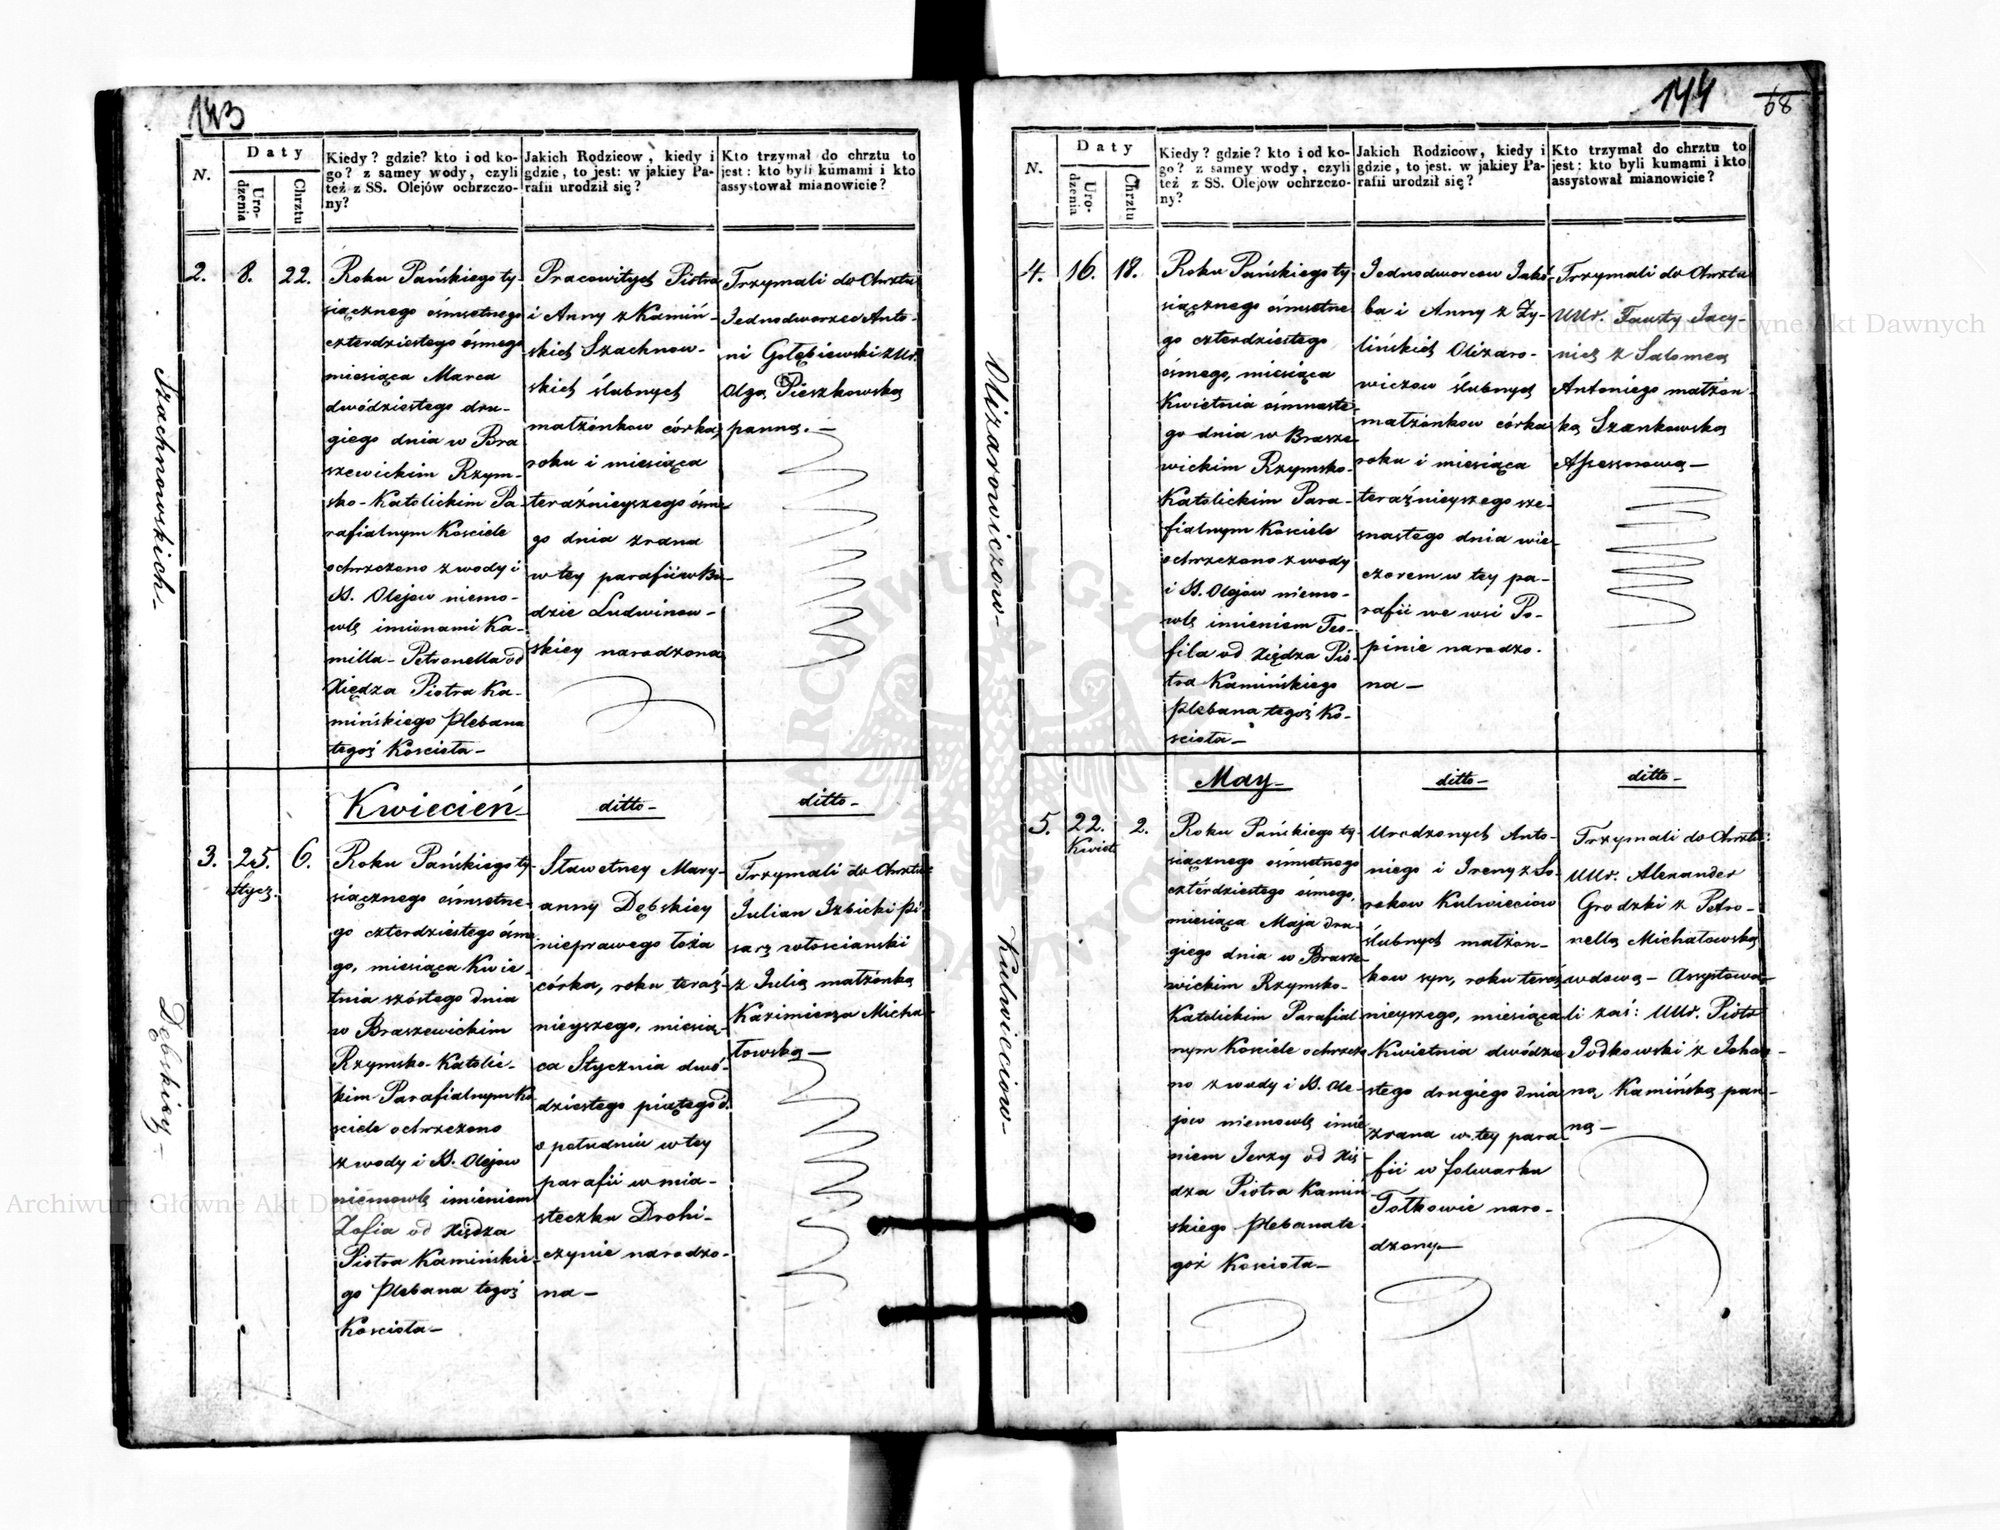 143
N.
Daty
Uro-
dzenia
Chrztu
Kiedy? gdzie? kto i od ko-
go? z samey wody, czyli
też z SS. Olejów ochrzczo-
ny?
Jakich Rodzicow, kiedy i
gdzie, to jest: w jakiey Pa-
rafii urodził się?
Kto trzymał do chrztu to
jest: kto byli kumami i kto
assystował mianowicie?
Szachnowskich.
2.
8.
22.
Roku Pańskiego ty-
siącznego ośmsetnego
czterdziestego ósmego
miesiąca Marca
dwódziestego dru-
giego dnia w Bra
szewickim Rzym-
sko-Katolickim Pa-
rafialnym Kosciele
ochrzczono z wody i
SS. Olejow niemo-
wlę imionami Ka-
milla-Petronella od
Xiędza Piotra Ka-
mińskiego Plebana
tegoż Koscioła-
Pracowitych Piotra
i Anny z Kamiń-
skich Szachnow-
skich ślubnych
małżonkow córka,
roku i miesiąca
teraźnieyszego ósme
go dnia zrana
w tey parafii w Bu-
dzie Ludwinow-
skiey narodzona
Trzymali do Chrztu
Jednodworzec Anto-
ni Gołębiewski z Ur.
Olgą Pieszkowską
panną.-
Dębskiey-
Kwiecień
ditto-
ditto-
3.
25.
Stycz.
6.
Roku Pańskiego ty-
siącznego ośmsetne-
go czterdziestego ósme
go, miesiąca Kwie-
tnia szóstego dnia
w Braszewickim
Rzymsko-Katolic-
kim Parafialnym Ko
sciele ochrzczono
z wody i SS. Olejow
niemowlę imieniem
Zofia od Xiędza
Piotra Kamińskie-
go Plebana tegoż
Kosciola-
Sławetney Mary-
anny Dębskiey
nieprawego łoża
córka, roku teraź-
nieyszego, miesią-
ca Stycznia dwó-
dziestego piątego d.
o południu w tey
parafii w mia-
steczku Drohi-
czynie narodzo-
na-
Trzymali do Chrztu
Julian Izbicki pi-
sarz włosciański
z Julią małżonką
Kazimierza Micha-
łowską-
144
58
N.
Daty
Uro-
dzenia
Chrztu
Kiedy? gdzie? kto i od ko-
go? z samey wody, czyli
też z SS. Olejow ochrzczo-
ny?
Jakich Rodzicow, kiedy i
gdzie, to jest. w jakiey Pa-
rafii urodził się?
Kto trzymał do chrztu to
jest: kto byli kumami i kto
assystował mianowicie?
Olizarowiczow-
4.
16.
18.
Roku Pańskiego ty
siącznego ośmsetne
go czterdziestego
ósmego, miesiąca
Kwietnia ośmnaste-
go dnia w Brasze-
wickim Rzymsko-
Katolickim Para-
fialnym Kosciele
ochrzczono z wody
i SS. Olejów niemo-
wlę imieniem Teo-
fila od Xiędza Pio-
tra Kamińskiego
Plebana tegoż Ko-
sciola-
Jednodworcow Jakó-
ba i Anny z Zy-
lińskich Olizaro-
wiczow ślubnych
małżonkow córka
roku i miesiąca
teraźnieyszego sze-
snastego dnia wie-
czorem w tey pa-
rafii we wsi Po-
pinie narodzo.
na-
Trzymali do Chrztu
UUr. Fausty Jacy-
nicz z Salomeą
Antoniego małżon-
ką Szankowską
Assessorową-
Kulwieciow-
May-
ditto-
ditto-
5.
22.
Kwiet
2.
Roku Pańskiego ty-
siącznego ośmsetnego
cztérdziestego ósmego,
miesiąca Maja dru-
giego dnia w Brasze-
wickim Rzymsko-
Katolickim Parafial
nym Kosciele ochrzczo
no z wody i SS. Ole-
jow niemowlę imie
niem Jerzy od Xię-
dza Piotra Kamiń
skiego Plebana te
goż Kosciola-
Urodzonych Anto-
niego i Ireny z So-
rokow Kulwieciow
ślubnych małżon-
kow syn, roku teraź
nieyszego, miesiąca
Kwietnia dwódzie
stego drugiego dnia
zrana w tey para-
fii w folwarku
Tołkowie naro-
dzony-
Trzymali do Chrztu:
UUr. Alexander
Grodzki z Petro-
nellą Michałowską
wdową- Assystowa-
li zaś: UUr. Piotr
Jodkowski z Johan-
ną Kamińską pan-
ną-
Archiwum Główne Akt Dawnych
Archiwum Główne Akt Dawnych
ARCHIWUM GŁÓWNE AKT DAWNYCH